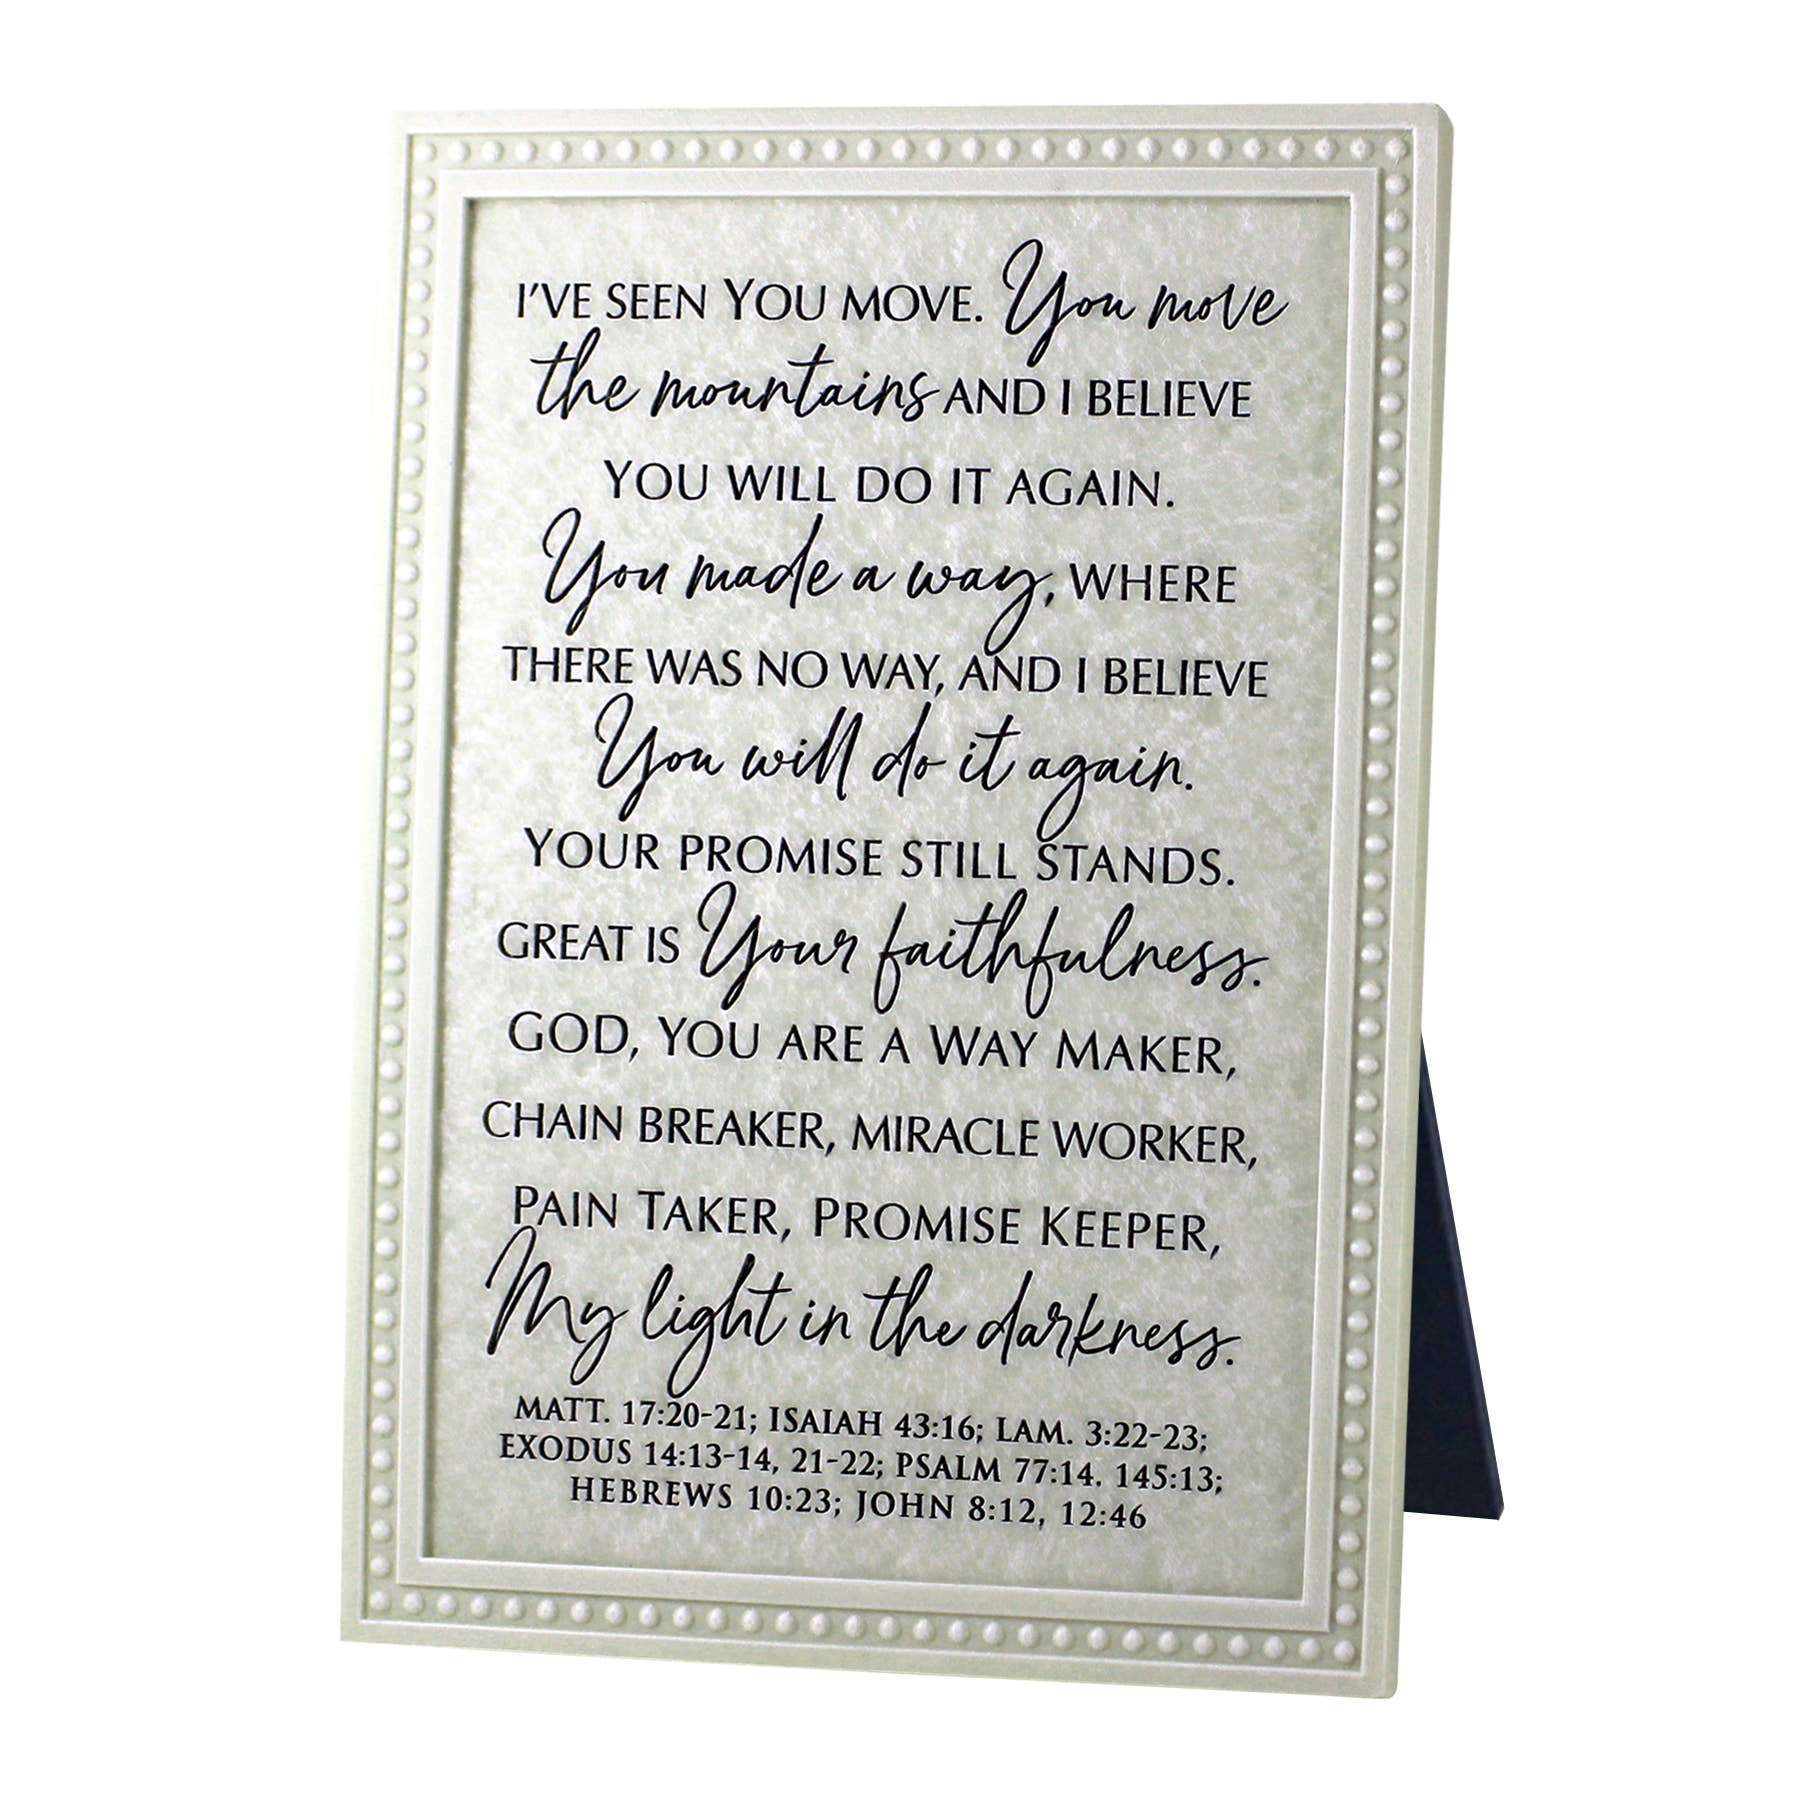 I'VE SEEN YOU MOVE. You move
the mountains AND I BELIEVE
YOU WILL DO IT AGAIN.
You made a way, WHERE
THERE WAS NO WAY, AND I BELIEVE
You will do it again.
YOUR PROMISE STILL STANDS.
GREAT IS Your faithfulness.
GOD, YOU ARE A WAY MAKER,
CHAIN BREAKER, MIRACLE WORKER,
PAIN TAKER, PROMISE KEEPER,
My light in the darkness.
MATT. 17:20-21; ISAIAH 43:16; LAM. 3:22-23;
EXODUS 14:13-14, 21-22; PSALM 77:14. 145:13;
HEBREWS 10:23; JOHN 8:12, 12:46